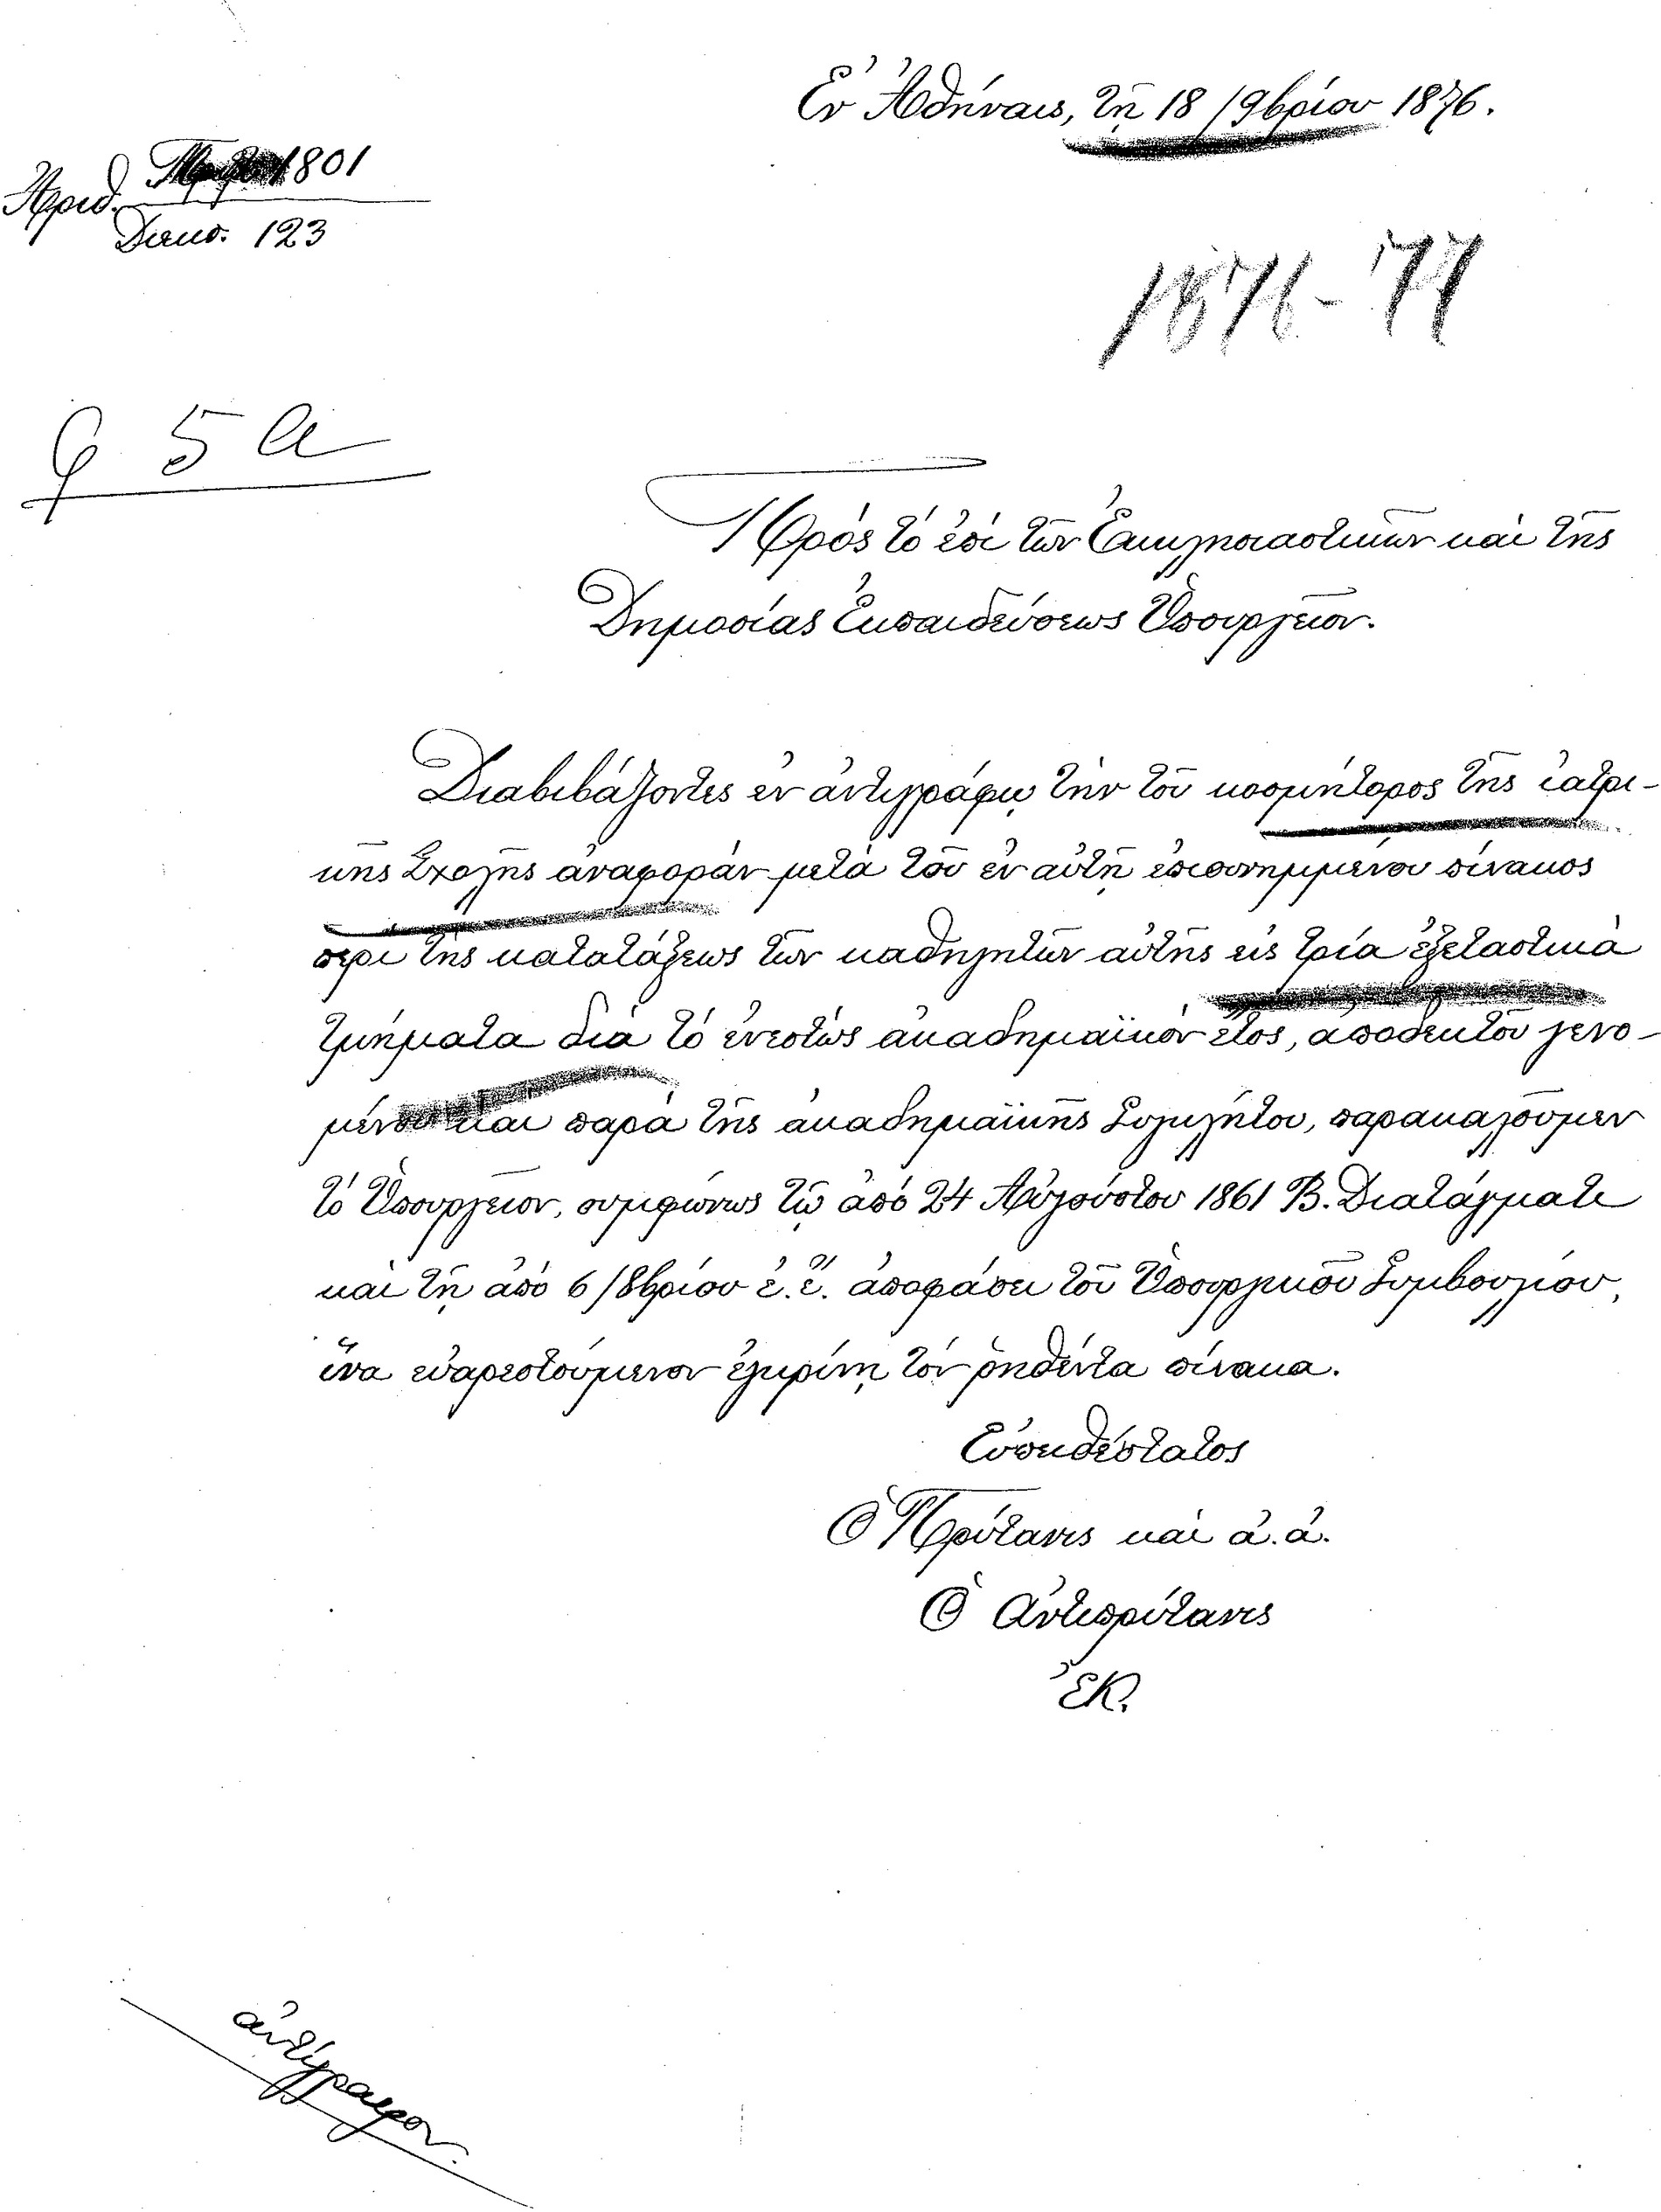 Ἐν Ἀθήναις, τῇ 18 /9βρίου 1876.
Ἀριθ. Πρωτ. 1801
Διεκπ. 123
1876-77
φ 5 α
Πρὸς τὸ ἐπὶ τῶν Ἐκκλησιαστικῶν καὶ τῆς
Δημοσίας Ἐκπαιδεύσεως Ὑπουργεῖον.
Διαβιβάζοντες ἐν ἀντιγράφῳ τὴν τοῦ κοσμήτορος τῆς ἰατρι-
κῆς Σχολῆς ἀναφορὰν μετὰ τοῦ ἐν αὐτῇ ἐπισυνημμένου πίνακος
περὶ τῆς κατατάξεως τῶν καθηγητῶν αὐτῆς εἰς τρία ἐξεταστικὰ
τμήματα διὰ τὸ ἐνεστὼς ἀκαδημαϊκὸν ἔτος, ἀποδεκτοῦ γενο-
μένου καὶ παρὰ τῆς ἀκαδημαϊκῆς Συγκλήτου, παρακαλοῦμεν
τὸ Ὑπουργεῖον, συμφώνως τῷ ἀπὸ 24 Αὐγούστου 1861 Β. Διατάγματι
καὶ τῇ ἀπὸ 6 /8βρίου ἐ. ἔ. ἀποφάσει τοῦ Ὑπουργικοῦ Συμβουλίου,
ἵνα εὐαρεστούμενον ἐγκρίνῃ τὸν ῥηθέντα πίνακα.
Εὐπειθέστατος
Ὁ Πρύτανις καὶ ἀ. ἀ.
Ὁ Ἀντιπρύτανις
ΕΚ.
ἀντίγραφον.